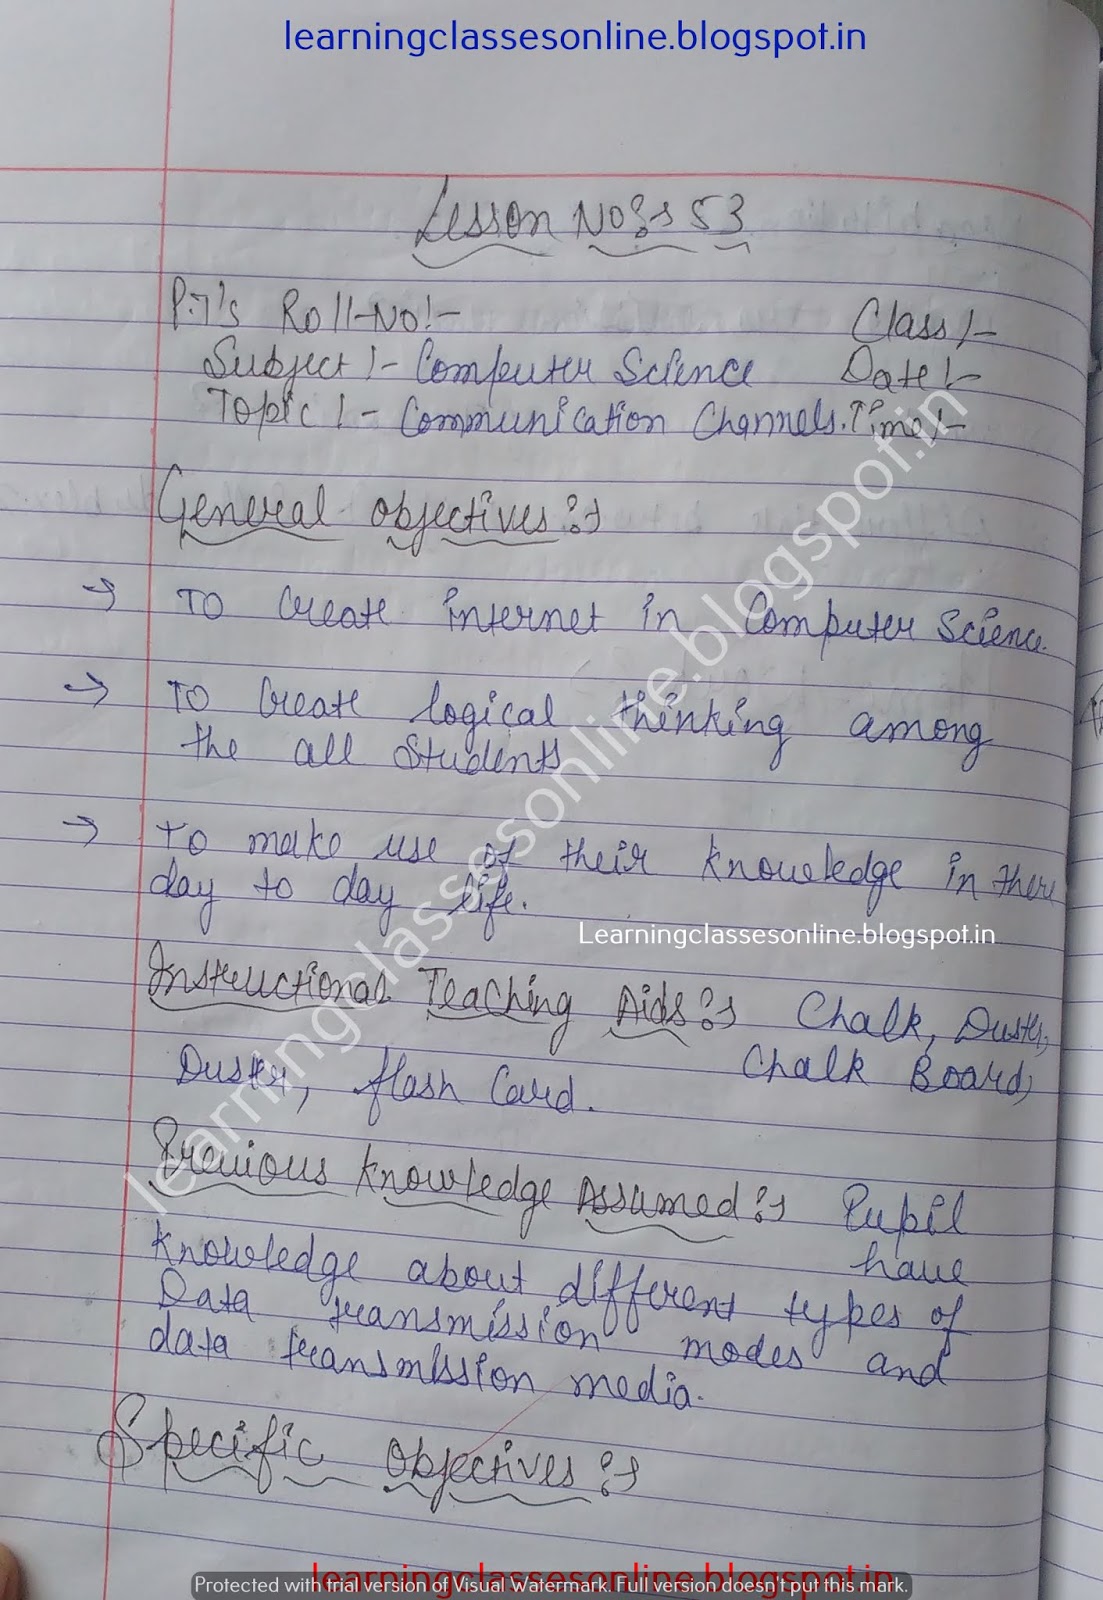 learningclassesonline.blogspot.in
Lesson No:- 53
P.T's Roll-No:- Class:-
Subject:- Computer Science Date:-
Topic:- Communication Channels. Time:-
General objectives:-
→ To Create internet in Computer Science.
→ To Create logical thinking among
the all Students
→ To make use of their knowledge in there
day to day life.
Learningclassesonline.blogspot.in
Instructional Teaching Aids:- Chalk, Duster,
Chalk Board,
Duster, flash Card.
Previous knowledge Assumed:- Pupil
have
knowledge about different types of
Data transmission modes and
data transmission media.
Specific objectives:-
learningclassesonline.blogspot.in
learningclassesonline.blogspot.in
Protected with trial version of Visual Watermark. Full version doesn't put this mark.